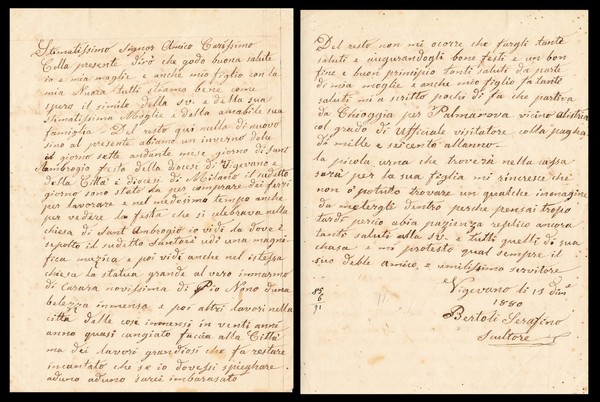 Stimatissimo Signor Amico Carissimo
Colla presente dirò che godo buona salute
io e mia moglie e anche mio figlio con la
mia Nuora tutti stiamo bene come
spero il simile della sv. e della sua
stimatissima Moglie e della amabile sua
famiglia. Del resto qui nulla di nuovo
sino al presente abiamo un inverno bello
il giorno sette andante mese giorno di Sant
Ambrogio festa della diocesi di Vigevano e
della Città e diocesi di Milano il sudetto
giorno sono stato la per comprare dei ferri
per lavorare e nel medesimo tempo anche
per vedere la festa che si celebrava nella
chiesa di Sant Ambrogio io vidi la dove è
sepolto il sudetto Santo e udi una magni-
fica muzica e poi vidi anche nel istessa
chiesa la statua grande al vero in marmo
di Carara novissima di Pio Nono d'una
belezza immensa e poi altri lavori nella
città delle cose immensi in venti anni
anno quasi cangiato faccia alla Città
ma dei lavori grandiosi che fa restare
incantato che se io dovessi spieghare
aduno aduno sarei imbarasato
Del resto non mi ocorre che fargli tante
saluti e augurandogli bone feste e un bon
fine e buon principio tanti saluti da parte
di mia moglie e anche mio figlio fa tanto
saluti mi a scritto pochi dì fa che partiva
da Chioggia per Palmanova vicino al'istria
col grado di Ufficiale visitatore colla pagha
di mille e seicento all'anno.
la picola urna che troverà nella cassa
sarà per la sua figlia mi rincresce che
non ò potuto trovare un qualche immagine
da metergli dentro perche pensai tropo
tardi perciò abia pazienza replico ancora
tanti saluti alla sv. e tutti quelli di sua
chasa e mi protesto qual sempre il
suo deble amico, e umilissimo servitore
Vigevano li 15 Dime
1880
Bertoli Serafino
Scultore
85
6
91